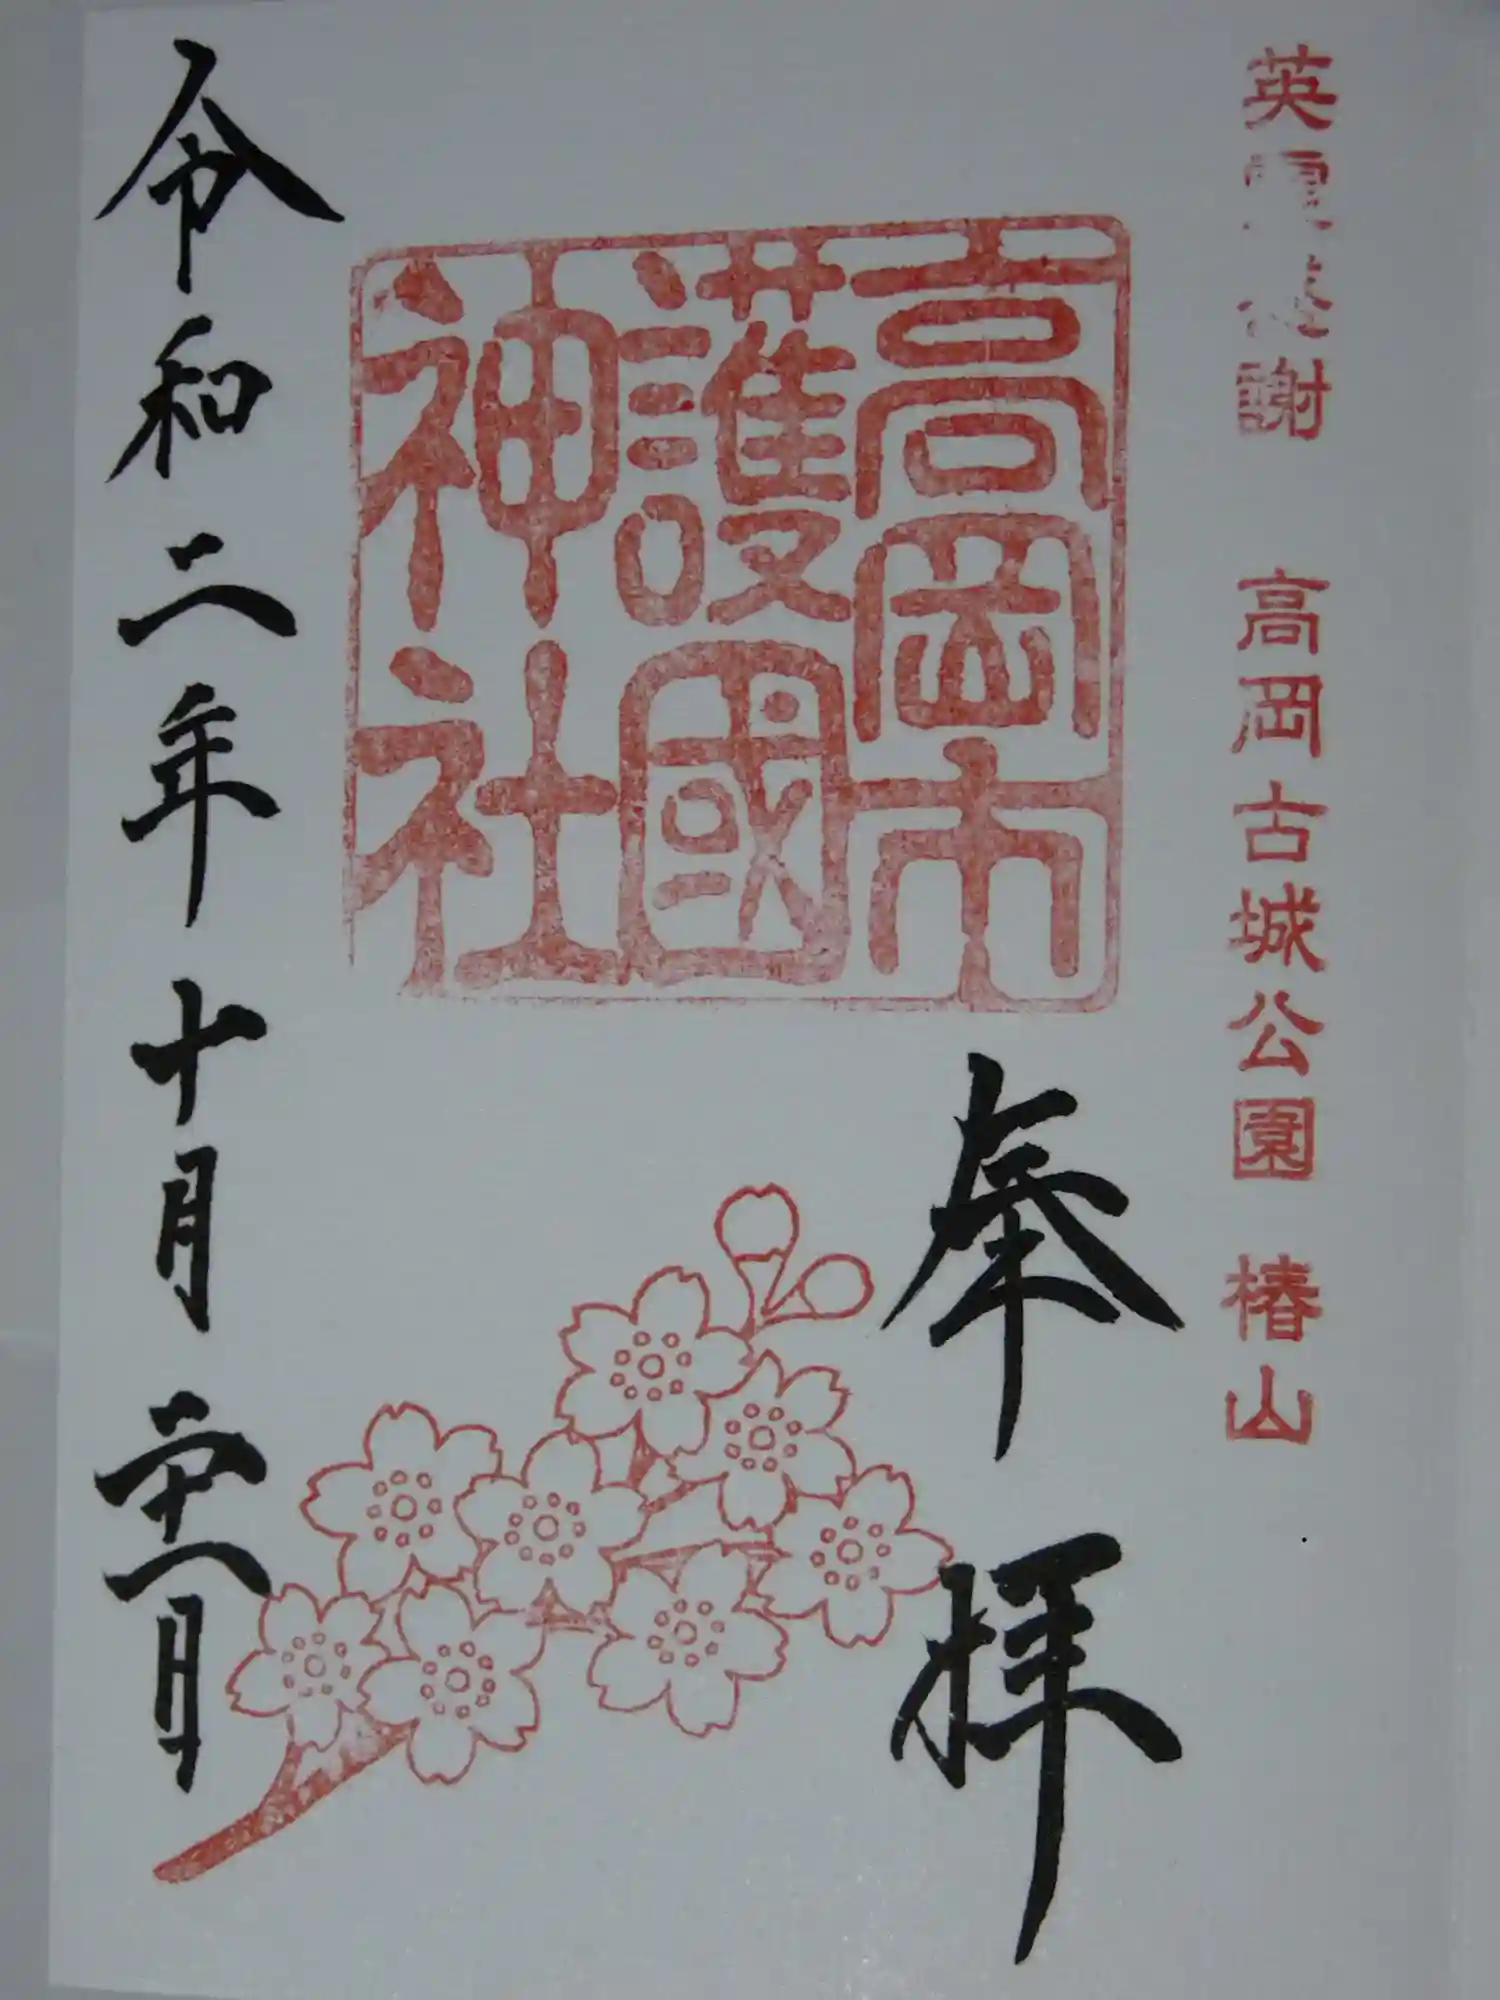 英霊感謝　高岡古城公園　椿山
奉拝
高岡市
護國
神社
令和二年十月二十八日